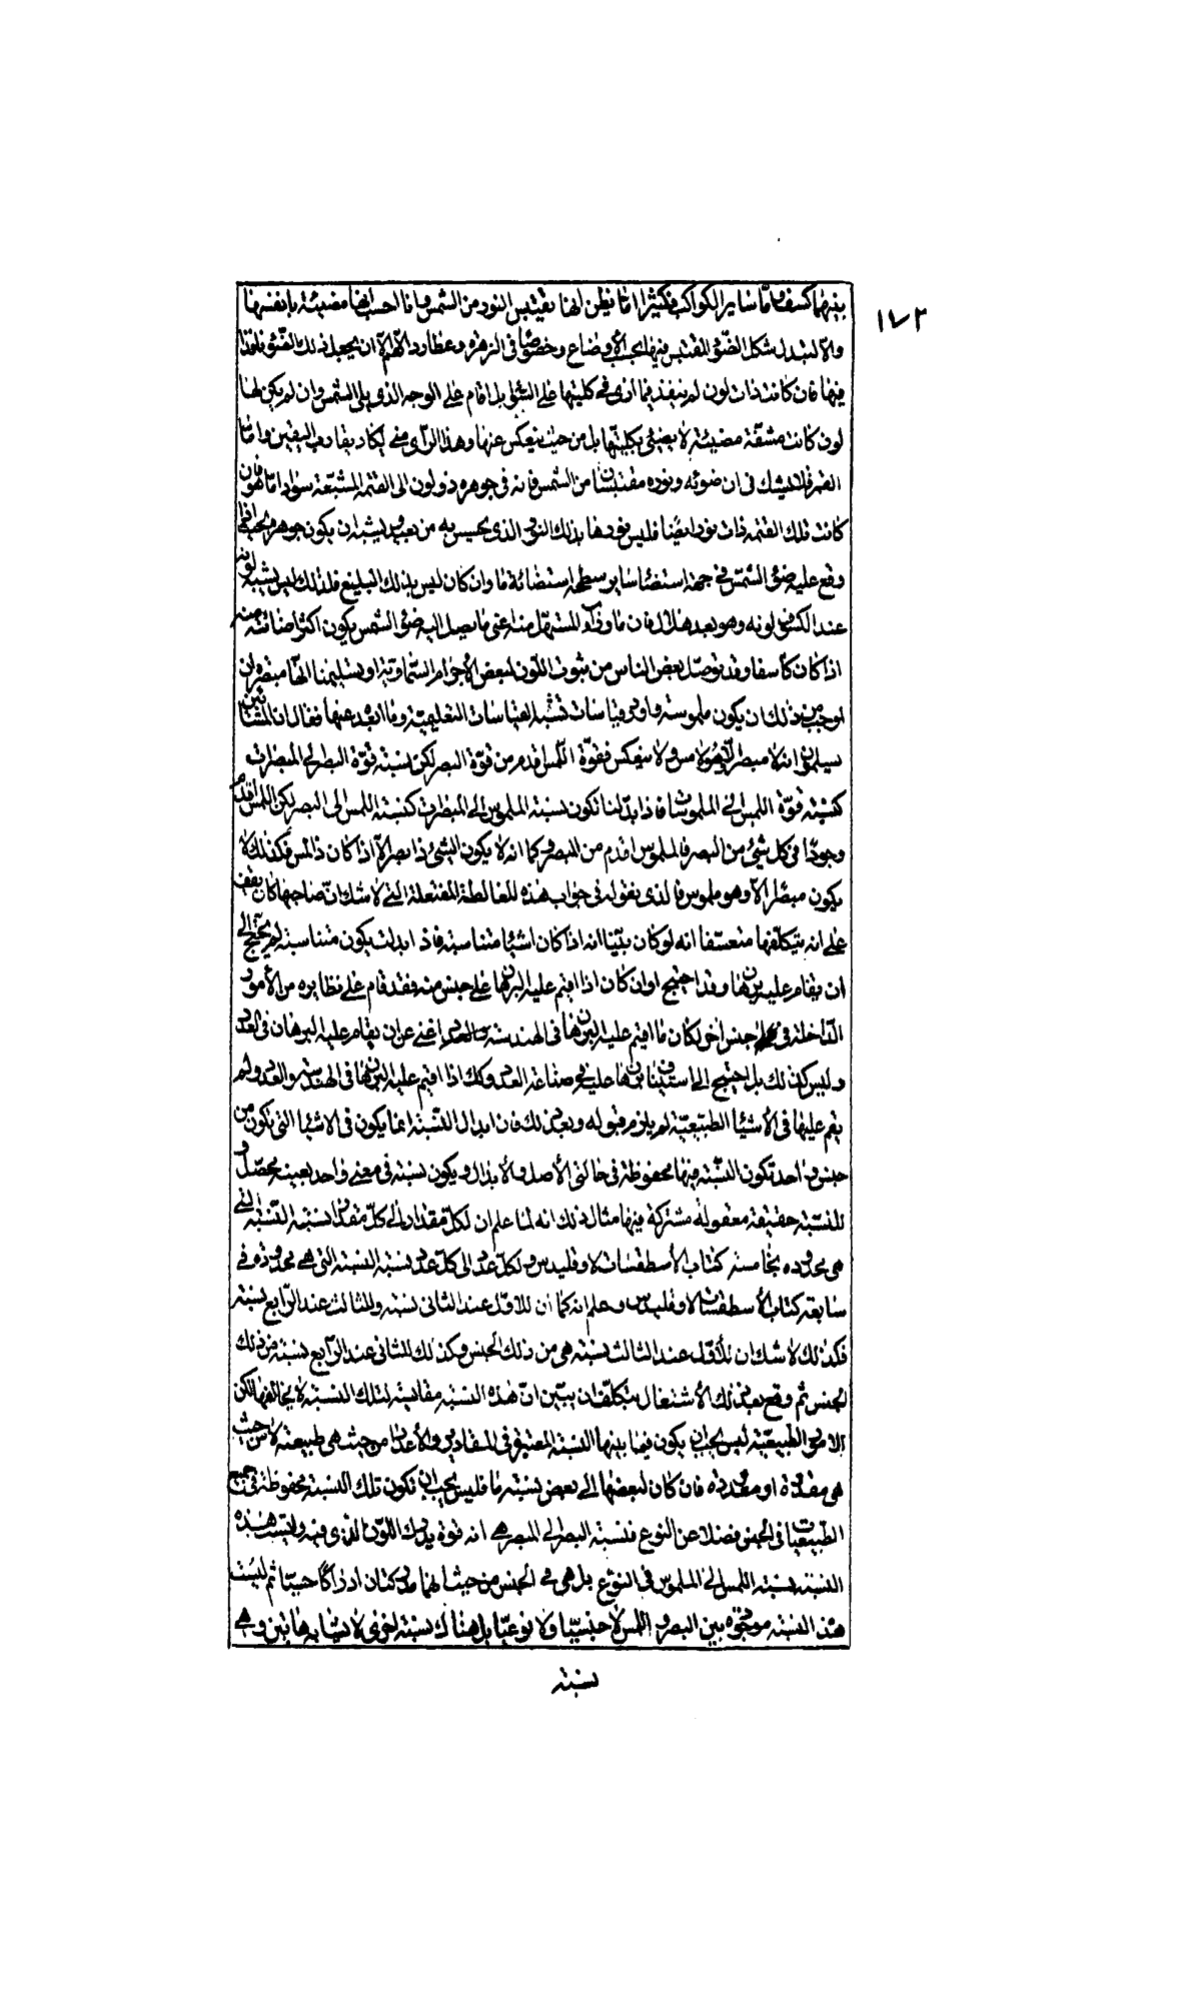 ١٧٢
بينهما كسف واما ساير الكواكب فكثيرا ما يظن انها يقتبس النور من الشمس وانا احسب انها مضيئة بانفسها
والا لتبدل شكل الضوء المقتبس فيها بحسب الأوضاع وخصوصا في الزهرة وعطارد اللهم الا ان يجعل ذلك الضوء نافذا
فيها فان كانت ذات لون لم ينفذ فيما ارى في كليتها على السواء بل اقام على الوجه الذي يلي الشمس وان لم يكن لها
لون كانت مشفة مضيئة لا يضئ بكليتها بل من حيث ينعكس عنها وهذا الرأي مني يكاد يقارب اليقين واما
القمر فلا يشك في ان ضوئه ونوره مقتبسان من الشمس فانه في جوهره ذو لون الى القتمة المشبعة سوادا ما هو فان
كانت تلك القتمة ذات نور ايضا فليس نورها بذلك النور الذي يحس به من بعيد ويشبه ان يكون جوهره بحيث اذا
وقع عليه ضوء الشمس في جهة استضاء ساير سطحه استضائة ما وان كان ليس بذلك البليغ فلذلك ليس يشبه لونه
عند الكسوف لونه وهو بعد هلال فان ما وراء المستهل منه اعني ما يصل اليه ضوء الشمس يكون اكثر اضائة منه
اذا كان كاسفا وقد توصل بعض الناس من ثبوت اللون لبعض الأجرام السماوية او تسليمنا انها مبصرة ان
اوجب من ذلك ان يكون ملموسة واورد قياسات تشبه القياسات التعليمية وما ابعد عنها فقال ان المشائين
يسلمون انه لا مبصر الا وهو لامس ولا ينعكس فقوة اللمس اقدم من قوة البصر لكن نسبة قوة البصر الى المبصرات
كنسبة قوة اللمس الى الملموسات فاذا بدلنا تكون نسبة الملموس الى المبصرات كنسبة اللمس الى البصر لكن اللمس اقدم
وجودا في كل شئ من البصر فالملموس اقدم من المبصر وكما انه لا يكون الشئ ذا بصر الا اذا كان ذا لمس فكذلك لا
يكون مبصرا الا وهو ملموس فالذي نقوله في جواب هذه المغالطة المفتعلة التي لا شك ان صاحبها كان يقف
على انه يتكلفها متعسفا انه لو كان بينا انه اذا كان اشياء متناسبة فاذا ابدلت يكون متناسبة لم يحتج الى
ان يقام عليه برهان وقد احتيج اوان كان اذا اقيم عليه البرهان على جنس منه فقد قام على نظايره من الأمور
الداخلة في جنس اخر لكان ما اقيم عليه البرهان في الهندسة اغنى عن ان يقام عليه البرهان في العدد
وليس كذلك بل يحتيج الى استيناف برهان عليه في صناعة العدد وكك اذا اقيم عليه البرهان في الهندسة والعدد ولم
يقم عليها في الأشياء الطبيعية لم يلزم قبوله وبعد ذلك فان ابدال النسبة انما يكون في الاشياء التي تكون من
جنس واحد تكون النسبة فيها محفوظة في حالتي الأصل والأبدال ويكون نسبة في معنى واحد بعينه محصل و
للنسبة حقيقة معقولة مشتركة فيها مثال ذلك انه لما علم ان لكل مقدار الى كل مقدار نسبة النسبة التي
هي محدودة بخامسة كتاب الأسطقسات لاوقليدس ولكل عدد الى كل عدد نسبة النسبة التي هي محدودة في
سابعة كتاب الأسطقسات لاوقليدس وعلم انه كما ان للأول عند الثاني نسبة وللثالث عند الرابع نسبة
فكذلك لا شك ان للأول عند الثالث نسبة هي من ذلك الجنس وكذلك للثاني عند الرابع نسبة من ذلك
الجنس ثم وقع بعد ذلك الأشتغال بتكلف ان يبين ان هذه النسبة مقايسة لتلك النسبة لا يخالفها لكن
الامور الطبيعية ليس يجب ان يكون فيما بينها النسبة المعتبرة في المقادير والأعداد من حيث هي طبيعية لا من حيث
هي مقدرة او معدودة فان كان لبعضها الى بعض نسبة ما فليس يجب ان تكون تلك النسبة محفوظة في جميع
الطبيعيات في الجنس فضلا عن النوع فنسبة البصر الى المبصر هي انه قوة يدرك اللون الذي فيه وليست هذه
النسبة نسبة اللمس الى الملموس في النوع بل هي في الجنس من حيث انهما مدركتان ادراكا حسيا ثم ليست
هذه النسبة موجودة بين البصر واللمس لا جنسيا ولا نوعيا بل هناك نسبة اخرى لا تشابه هاتين وهي
نسبة